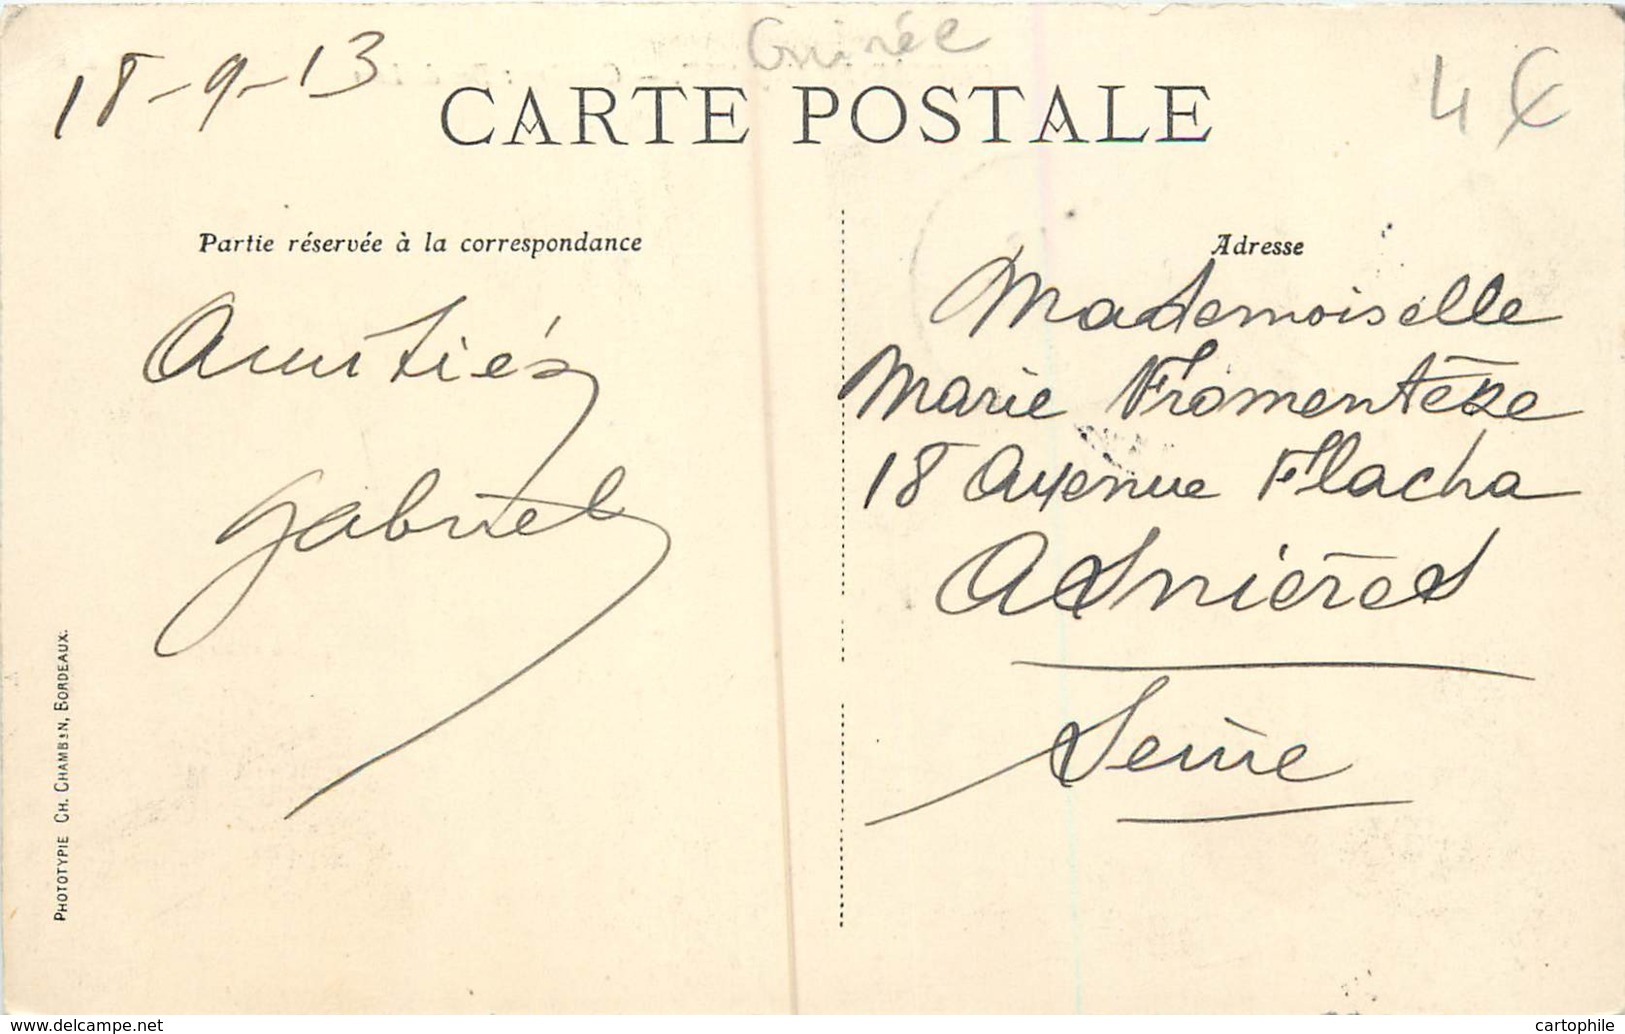 Guinée
18-9-13
4€
CARTE POSTALE
Partie réservée à la correspondance
Adresse
Amitiés
Gabriel
Mademoiselle
Marie Fromentèze
18 Avenue Flacha
Asnières
Seine
PHOTOTYPIE CH. CHAMBON, BORDEAUX.
www.delcampe.net
cartophile